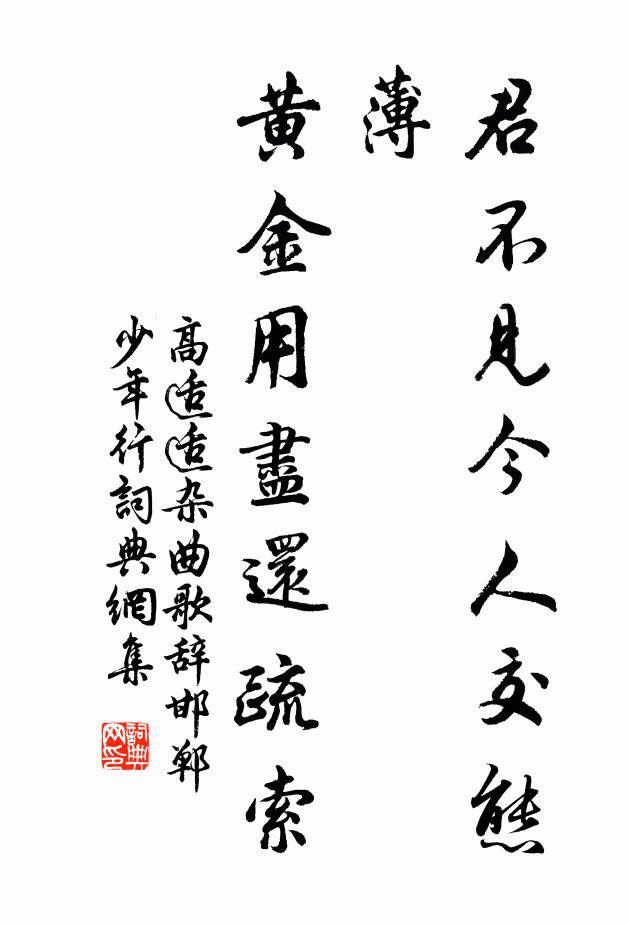 君不見今人交態
薄
黃金用盡還疏索
高适适杂曲歌辞邯鄲
少年行詞典網集
詞典
网印